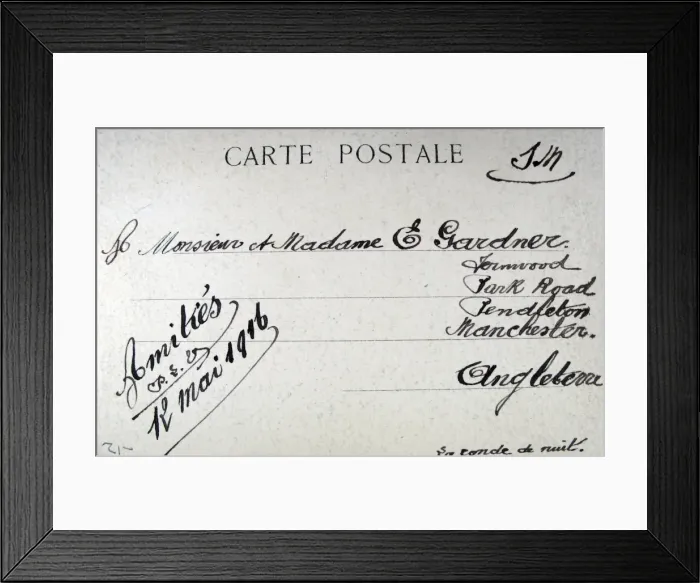 CARTE POSTALE
S.M
A Monsieur et Madame E Gardner.
Fernwood
Park Road
Pendleton
Manchester.
Angleterre
Amitiés
12 mai 1916
ronde de nuit.